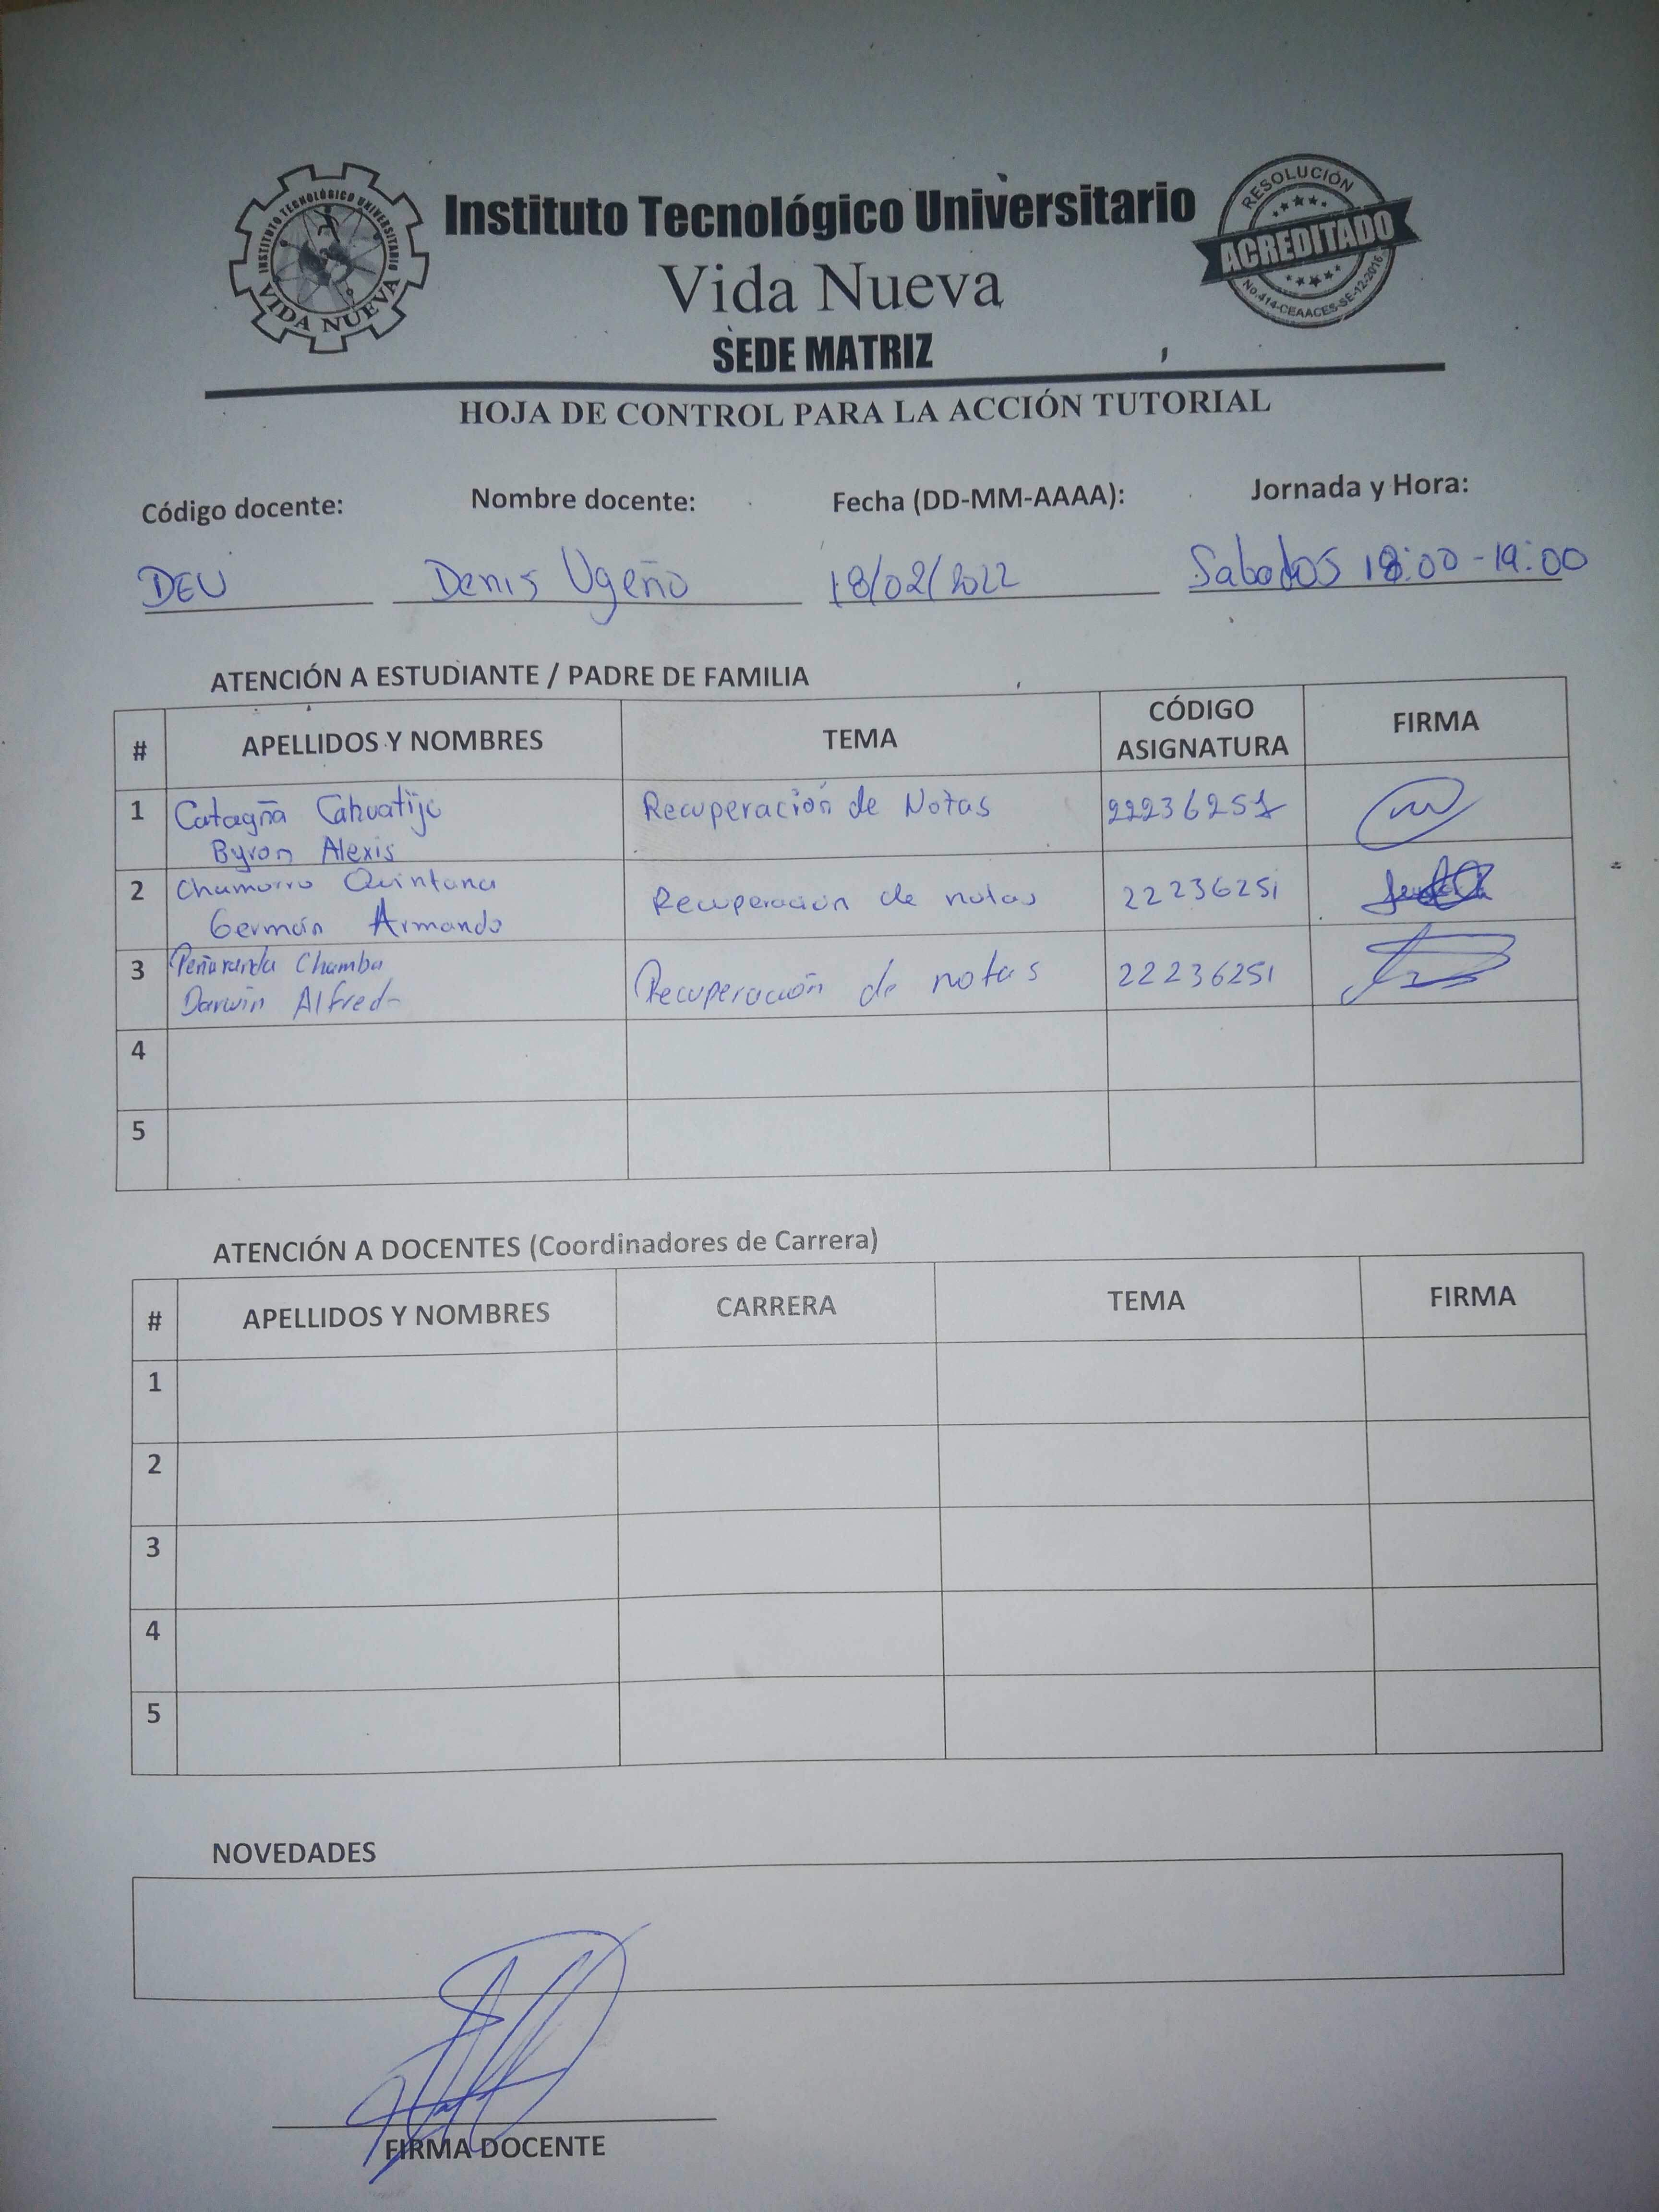 INSTITUTO TECNOLÓGICO UNIVERSITARIO
VIDA NUEVA
Instituto Tecnológico Universitario
Vida Nueva
SEDE MATRIZ
RESOLUCIÓN
ACREDITADO
No.414-CEAACES-SE-12-2016
HOJA DE CONTROL PARA LA ACCIÓN TUTORIAL
Código docente: Nombre docente: Fecha (DD-MM-AAAA): Jornada y Hora:
DEU Denis Ugeño 18/02/2022 Sabados 18:00-19:00
ATENCIÓN A ESTUDIANTE / PADRE DE FAMILIA
# APELLIDOS Y NOMBRES TEMA CÓDIGO ASIGNATURA FIRMA
1 Catagña Cahuatijo Recuperación de Notas 22236251
Byron Alexis
2 Chamorro Quintana Recuperación de notas 22236251
Germán Armando
3 Peñaranda Chamba Recuperación de notas 22236251
Darwin Alfredo
4
5
ATENCIÓN A DOCENTES (Coordinadores de Carrera)
# APELLIDOS Y NOMBRES CARRERA TEMA FIRMA
1
2
3
4
5
NOVEDADES
FIRMA DOCENTE